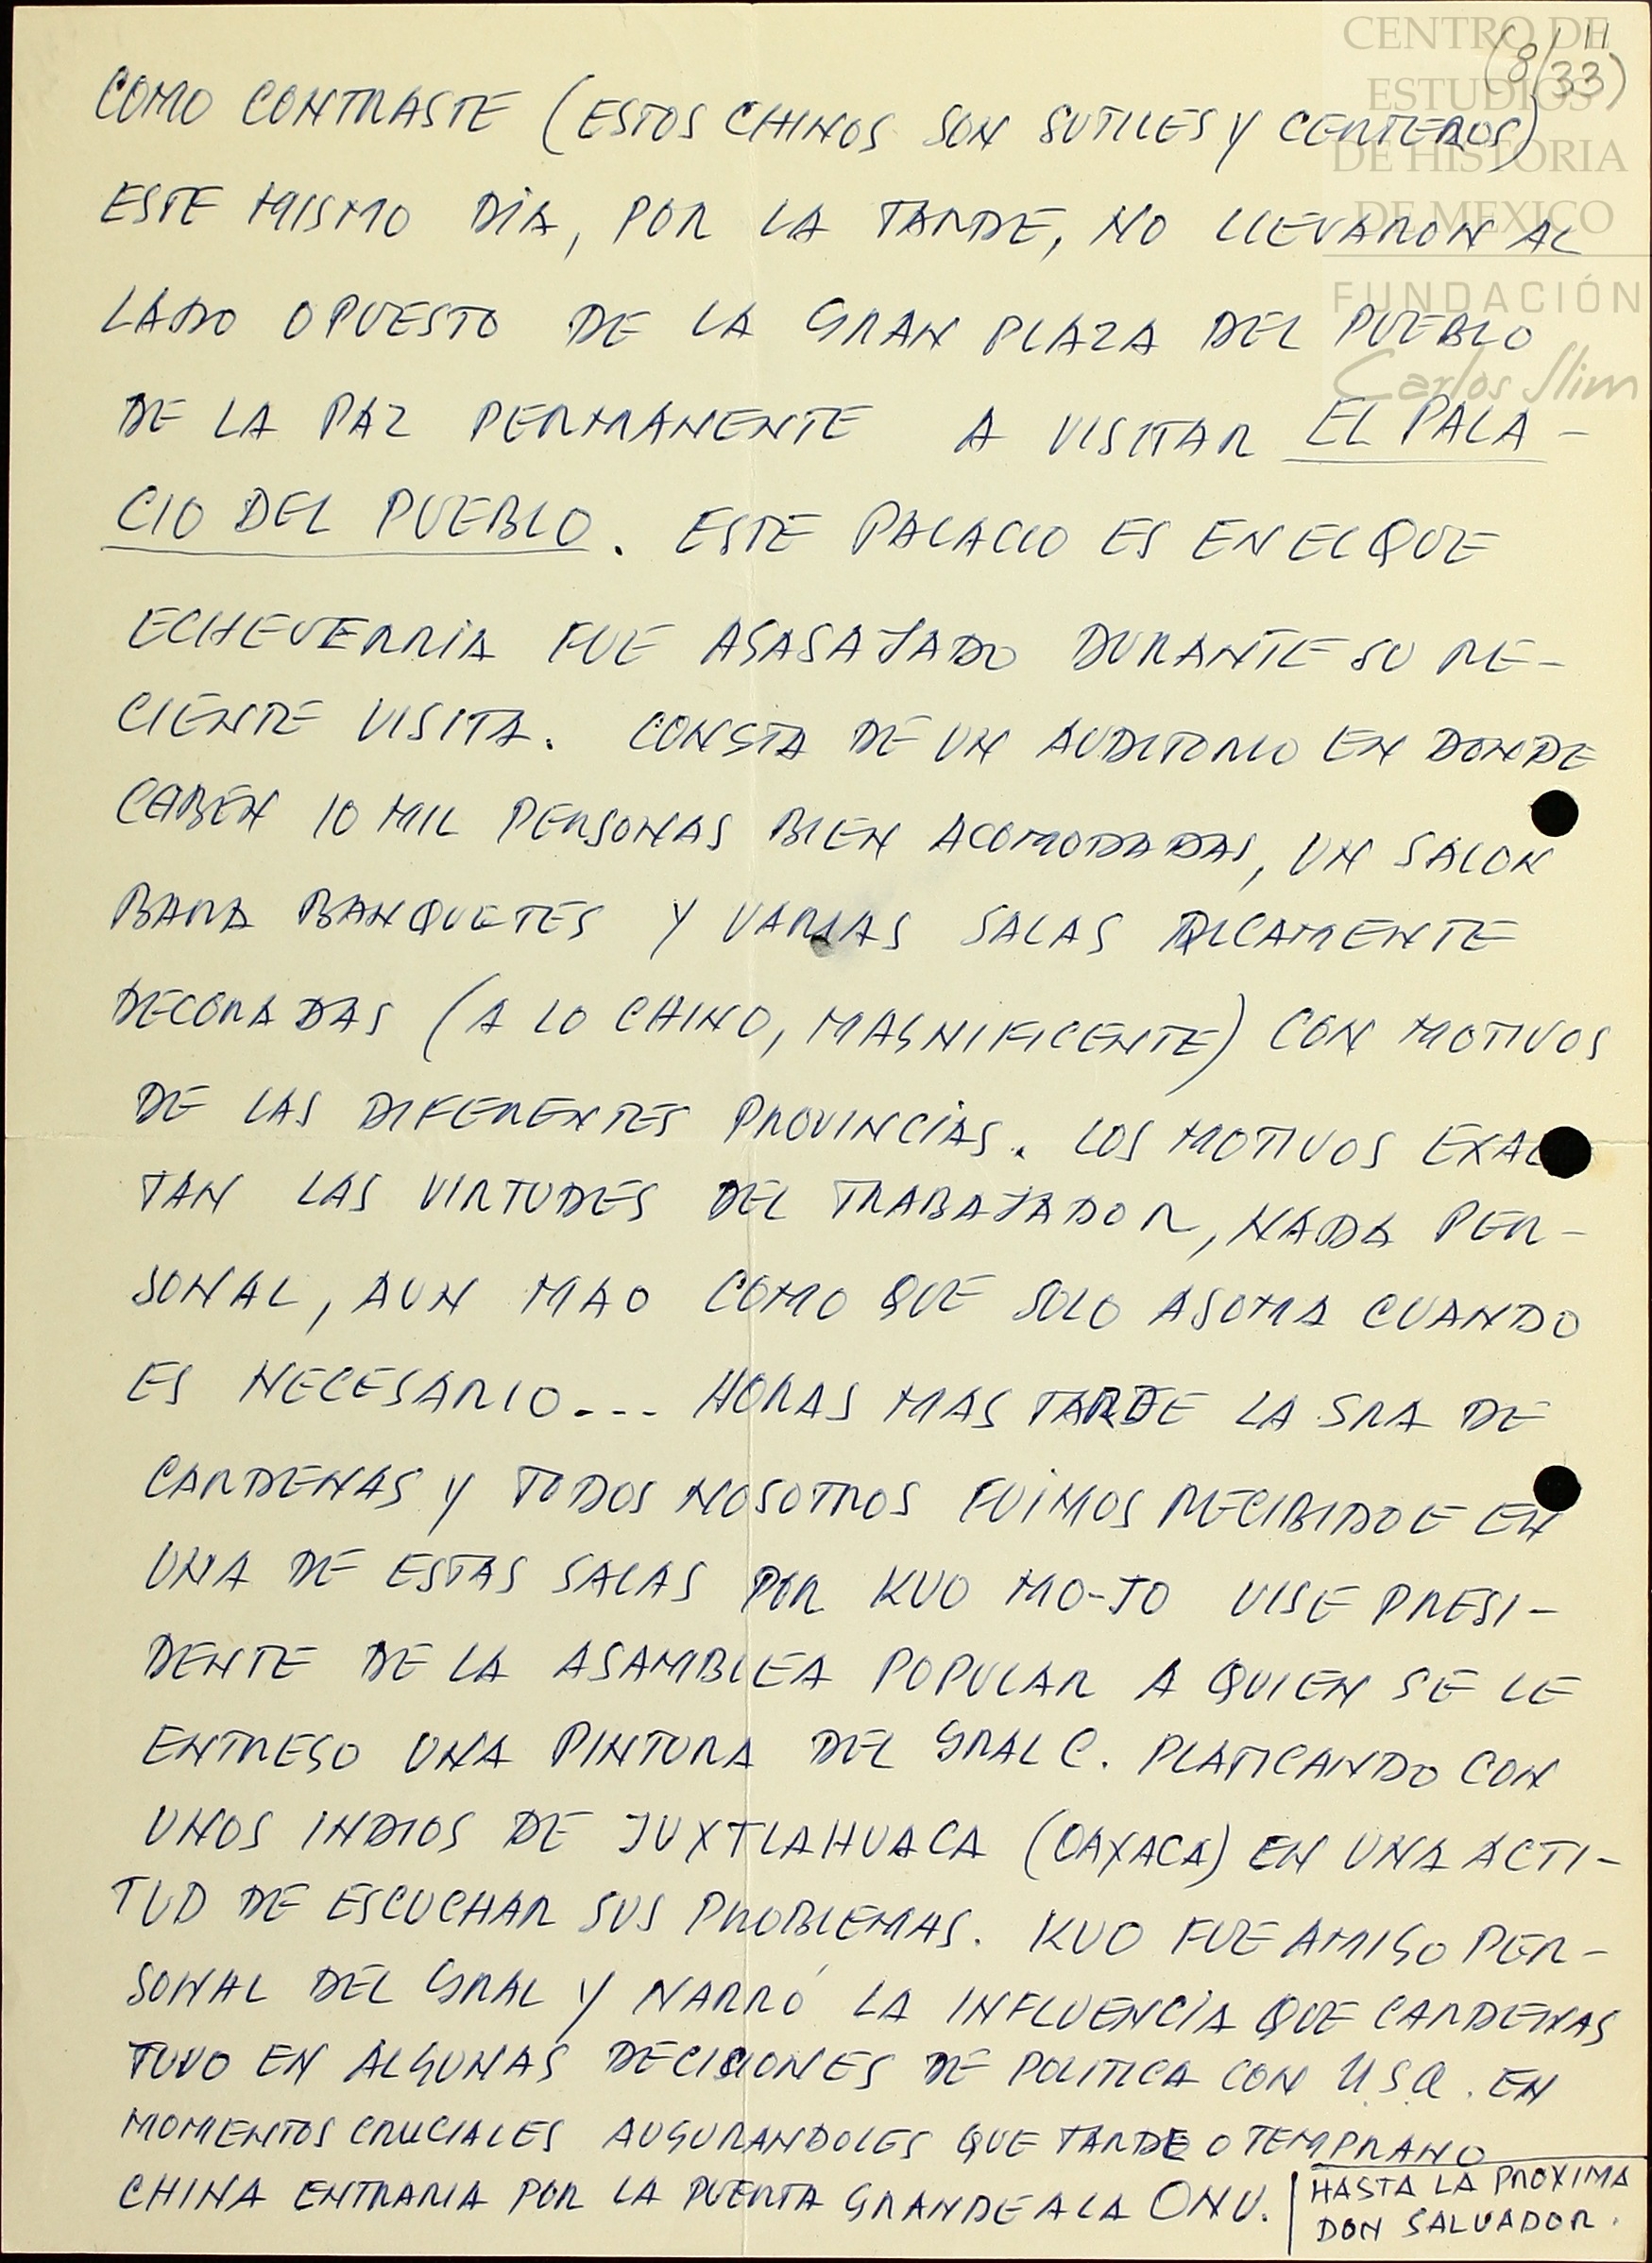 CENTRO DE
ESTUDIOS
DE HISTORIA
DE MEXICO
FUNDACIÓN
Carlos Slim
11
(8/33)
COMO CONTRASTE (ESTOS CHINOS SON SUTILES Y CERTEROS)
ESTE MISMO DIA, POR LA TARDE, NO LLEVARON AL
LADO OPUESTO DE LA GRAN PLAZA DEL PUEBLO
DE LA PAZ PERMANENTE A VISITAR EL PALA-
CIO DEL PUEBLO. ESTE PALACIO ES EN EL QUE
ECHEVERRIA FUE AGASAJADO DURANTE SU RE-
CIENTE VISITA. CONSTA DE UN AUDITORIO EN DONDE
CABEN 10 MIL PERSONAS BIEN ACOMODADAS, UN SALON
PARA BANQUETES Y VARIAS SALAS RICAMENTE
DECORADAS (A LO CHINO, MAGNIFICENTE) CON MOTIVOS
DE LAS DIFERENTES PROVINCIAS. LOS MOTIVOS EXAL
TAN LAS VIRTUDES DEL TRABAJADOR, NADA PER-
SONAL, AUN MAO COMO QUE SOLO ASOMA CUANDO
ES NECESARIO... HORAS MAS TARDE LA SRA DE
CARDENAS Y TODOS NOSOTROS FUIMOS RECIBIDOE EN
UNA DE ESTAS SALAS POR KUO MO-JO VISE PRESI-
DENTE DE LA ASAMBLEA POPULAR A QUIEN SE LE
ENTREGO UNA PINTURA DEL GRAL C. PLATICANDO CON
UNOS INDIOS DE JUXTLAHUACA (OAXACA) EN UNA ACTI-
TUD DE ESCUCHAR SUS PROBLEMAS. KUO FUE AMIGO PER-
SONAL DEL GRAL Y NARRÓ LA INFLUENCIA QUE CARDENAS
TUVO EN ALGUNAS DECISIONES DE POLITICA CON U.S.A. EN
MOMENTOS CRUCIALES AUGURANDOLES QUE TARDE O TEMPRANO
CHINA ENTRARIA POR LA PUERTA GRANDE A LA ONU.
HASTA LA PROXIMA
DON SALVADOR.